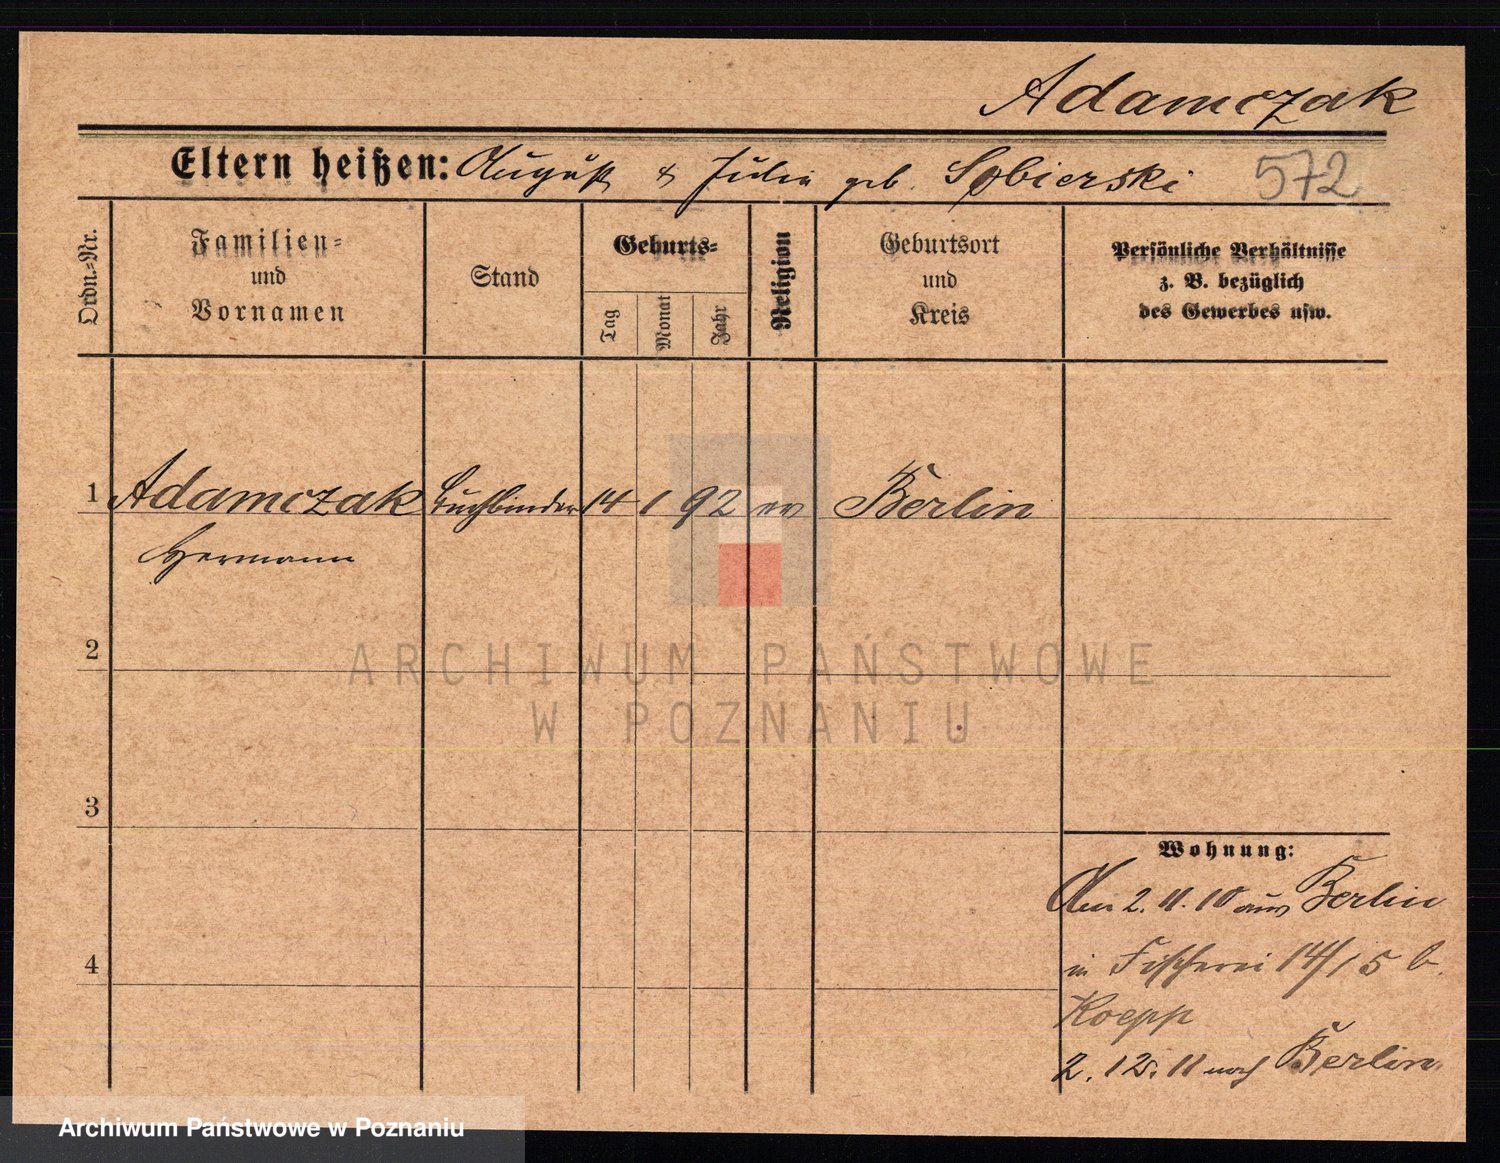 Adamczak
Eltern heißen: August & Julia geb. Sobierski 572
Ordn.-Nr.
Familien-
und
Vornamen
Stand
Geburts-
Tag
Monat
Jahr
Religion
Geburtsort
und
Kreis
Persönliche Verhältnisse
z. B. bezüglich
des Gewerbes usw.
1 Adamczak Buchbinder 14 1 92 ev Berlin
Hermann
2
ARCHIWUM PAŃSTWOWE
W POZNANIU
3
Wohnung:
2. 11. 10 aus Berlin
in Fischerei 14/15 b.
4
Koepp
2. 12. 11 nach Berlin
Archiwum Państwowe w Poznaniu